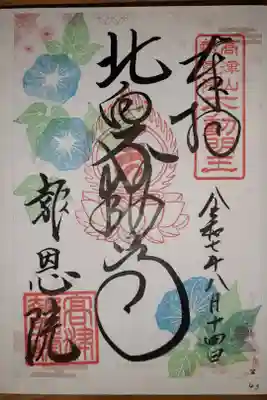 奉拝
令和七年八月十四日
北向不動尊
報恩院